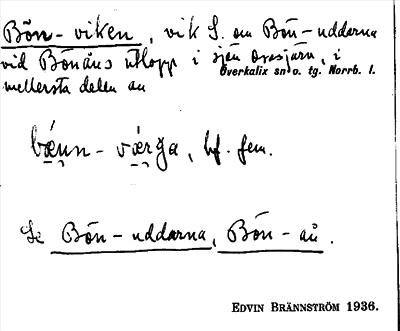 Bön-viken, vik S. om Bön-uddarna
vid Bönåns utlopp i sjön Ovasjärv, i
mellersta delen av Överkalix sn o. tg. Norrb. l.
bǽnn-værga, bf. fem.
Se Bön-uddarna, Bön-ån.
EDVIN BRÄNNSTRÖM 1936.